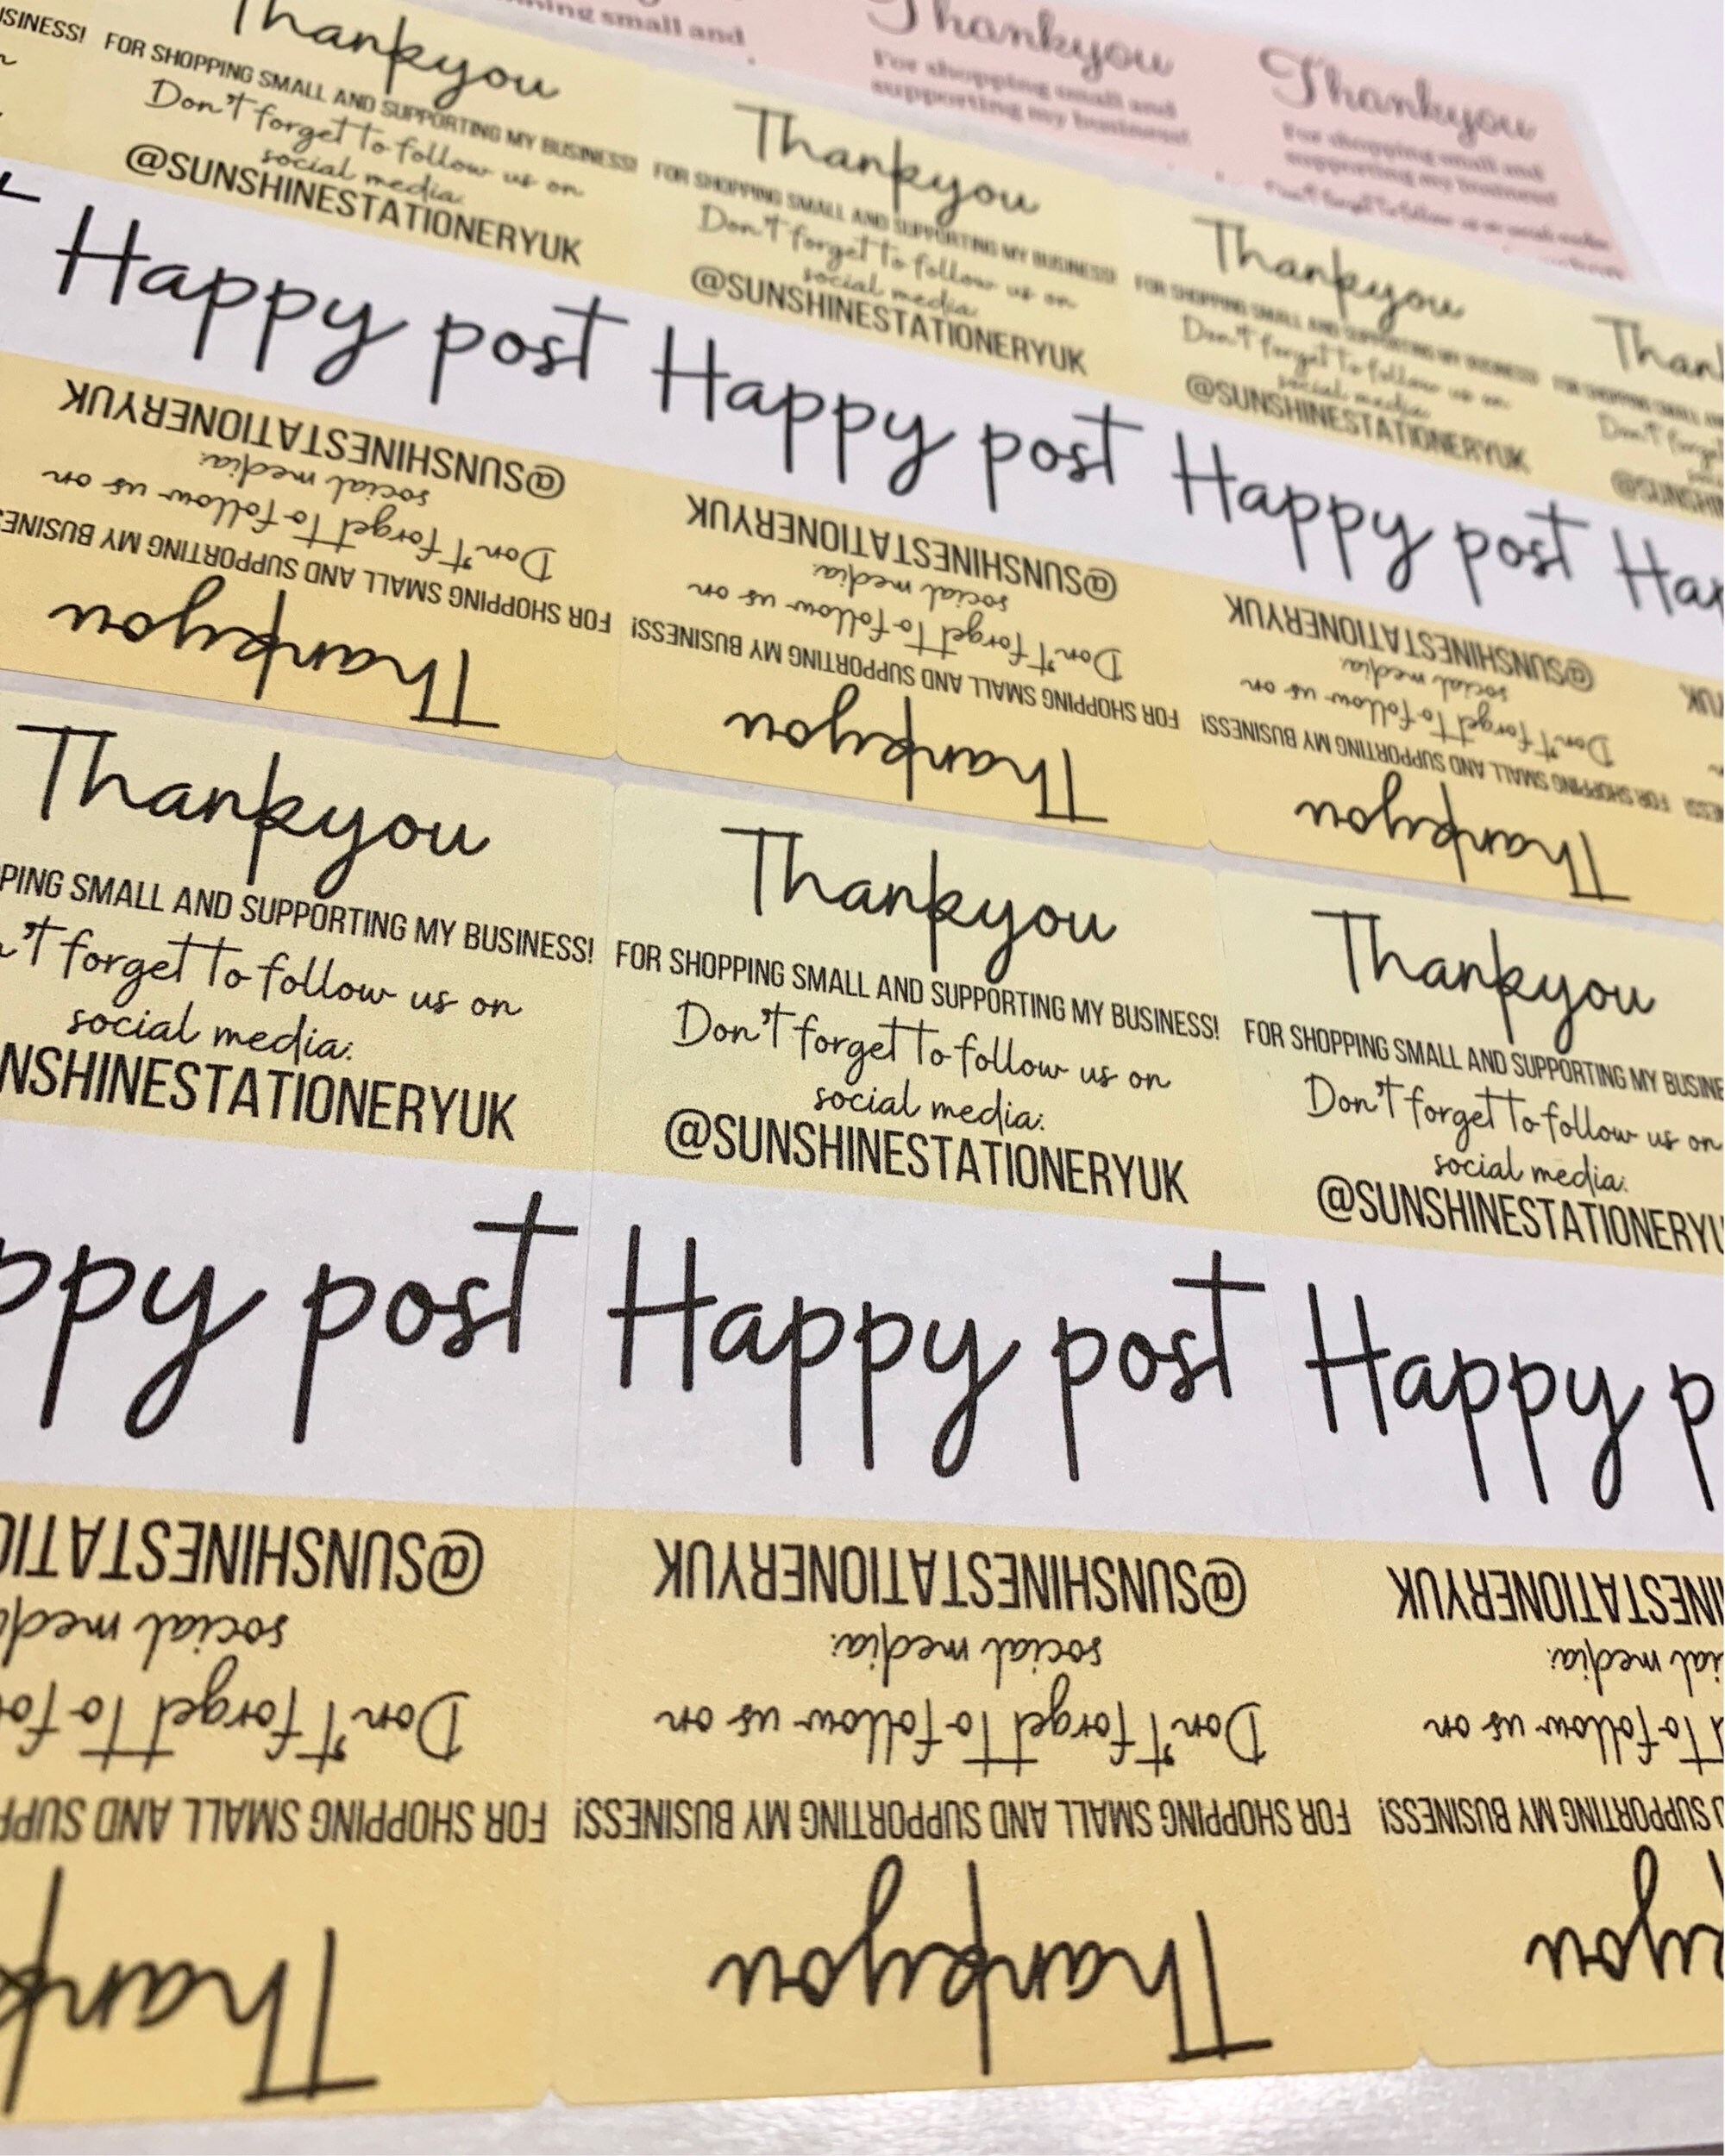 Thankyou
For shopping small and
supporting my business!
Thankyou
For shopping small and
supporting my business!
Don't forget to follow us on social media:
ning small and
BUSINESS!
Thankyou
FOR SHOPPING SMALL AND SUPPORTING MY BUSINESS!
Don't forget to follow us on
social media:
@SUNSHINESTATIONERYUK
Thankyou
FOR SHOPPING SMALL AND SUPPORTING MY BUSINESS!
Don't forget to follow us on
social media:
@SUNSHINESTATIONERYUK
Thankyou
FOR SHOPPING SMALL AND SUPPORTING MY BUSINESS!
Don't forget to follow us on
social media:
@SUNSHINESTATIONERYUK
Than
FOR SHOPPING SMALL
Don't forget
@SUNSHIN
Happy post Happy post Happy post Hap
@SUNSHINESTATIONERYUK
social media:
Don't forget to follow us on
FOR SHOPPING SMALL AND SUPPORTING MY BUSINE
Thankyou
@SUNSHINESTATIONERYUK
social media:
Don't forget to follow us on
FOR SHOPPING SMALL AND SUPPORTING MY BUSINESS!
Thankyou
@SUNSHINESTATIONERYUK
social media:
Don't forget to follow us on
FOR SHOPPING SMALL AND SUPPORTING MY BUSINESS!
Thankyou
Thankyou
PING SMALL AND SUPPORTING MY BUSINESS!
n't forget to follow us on
social media:
NSHINESTATIONERYUK
Thankyou
FOR SHOPPING SMALL AND SUPPORTING MY BUSINESS!
Don't forget to follow us on
social media:
@SUNSHINESTATIONERYUK
Thankyou
FOR SHOPPING SMALL AND SUPPORTING MY BUSINE
Don't forget to follow us on
social media:
@SUNSHINESTATIONERYU
ppy post Happy post Happy p
@SUNSHINESTATIO
social media
Don't forget to fo
FOR SHOPPING SMALL AND SUPP
Thank
@SUNSHINESTATIONERYUK
social media:
Don't forget to follow us on
FOR SHOPPING SMALL AND SUPPORTING MY BUSINESS!
Thankyou
INESTATIONERYUK
ial media:
t to follow us on
D SUPPORTING MY BUSINESS!
kyou